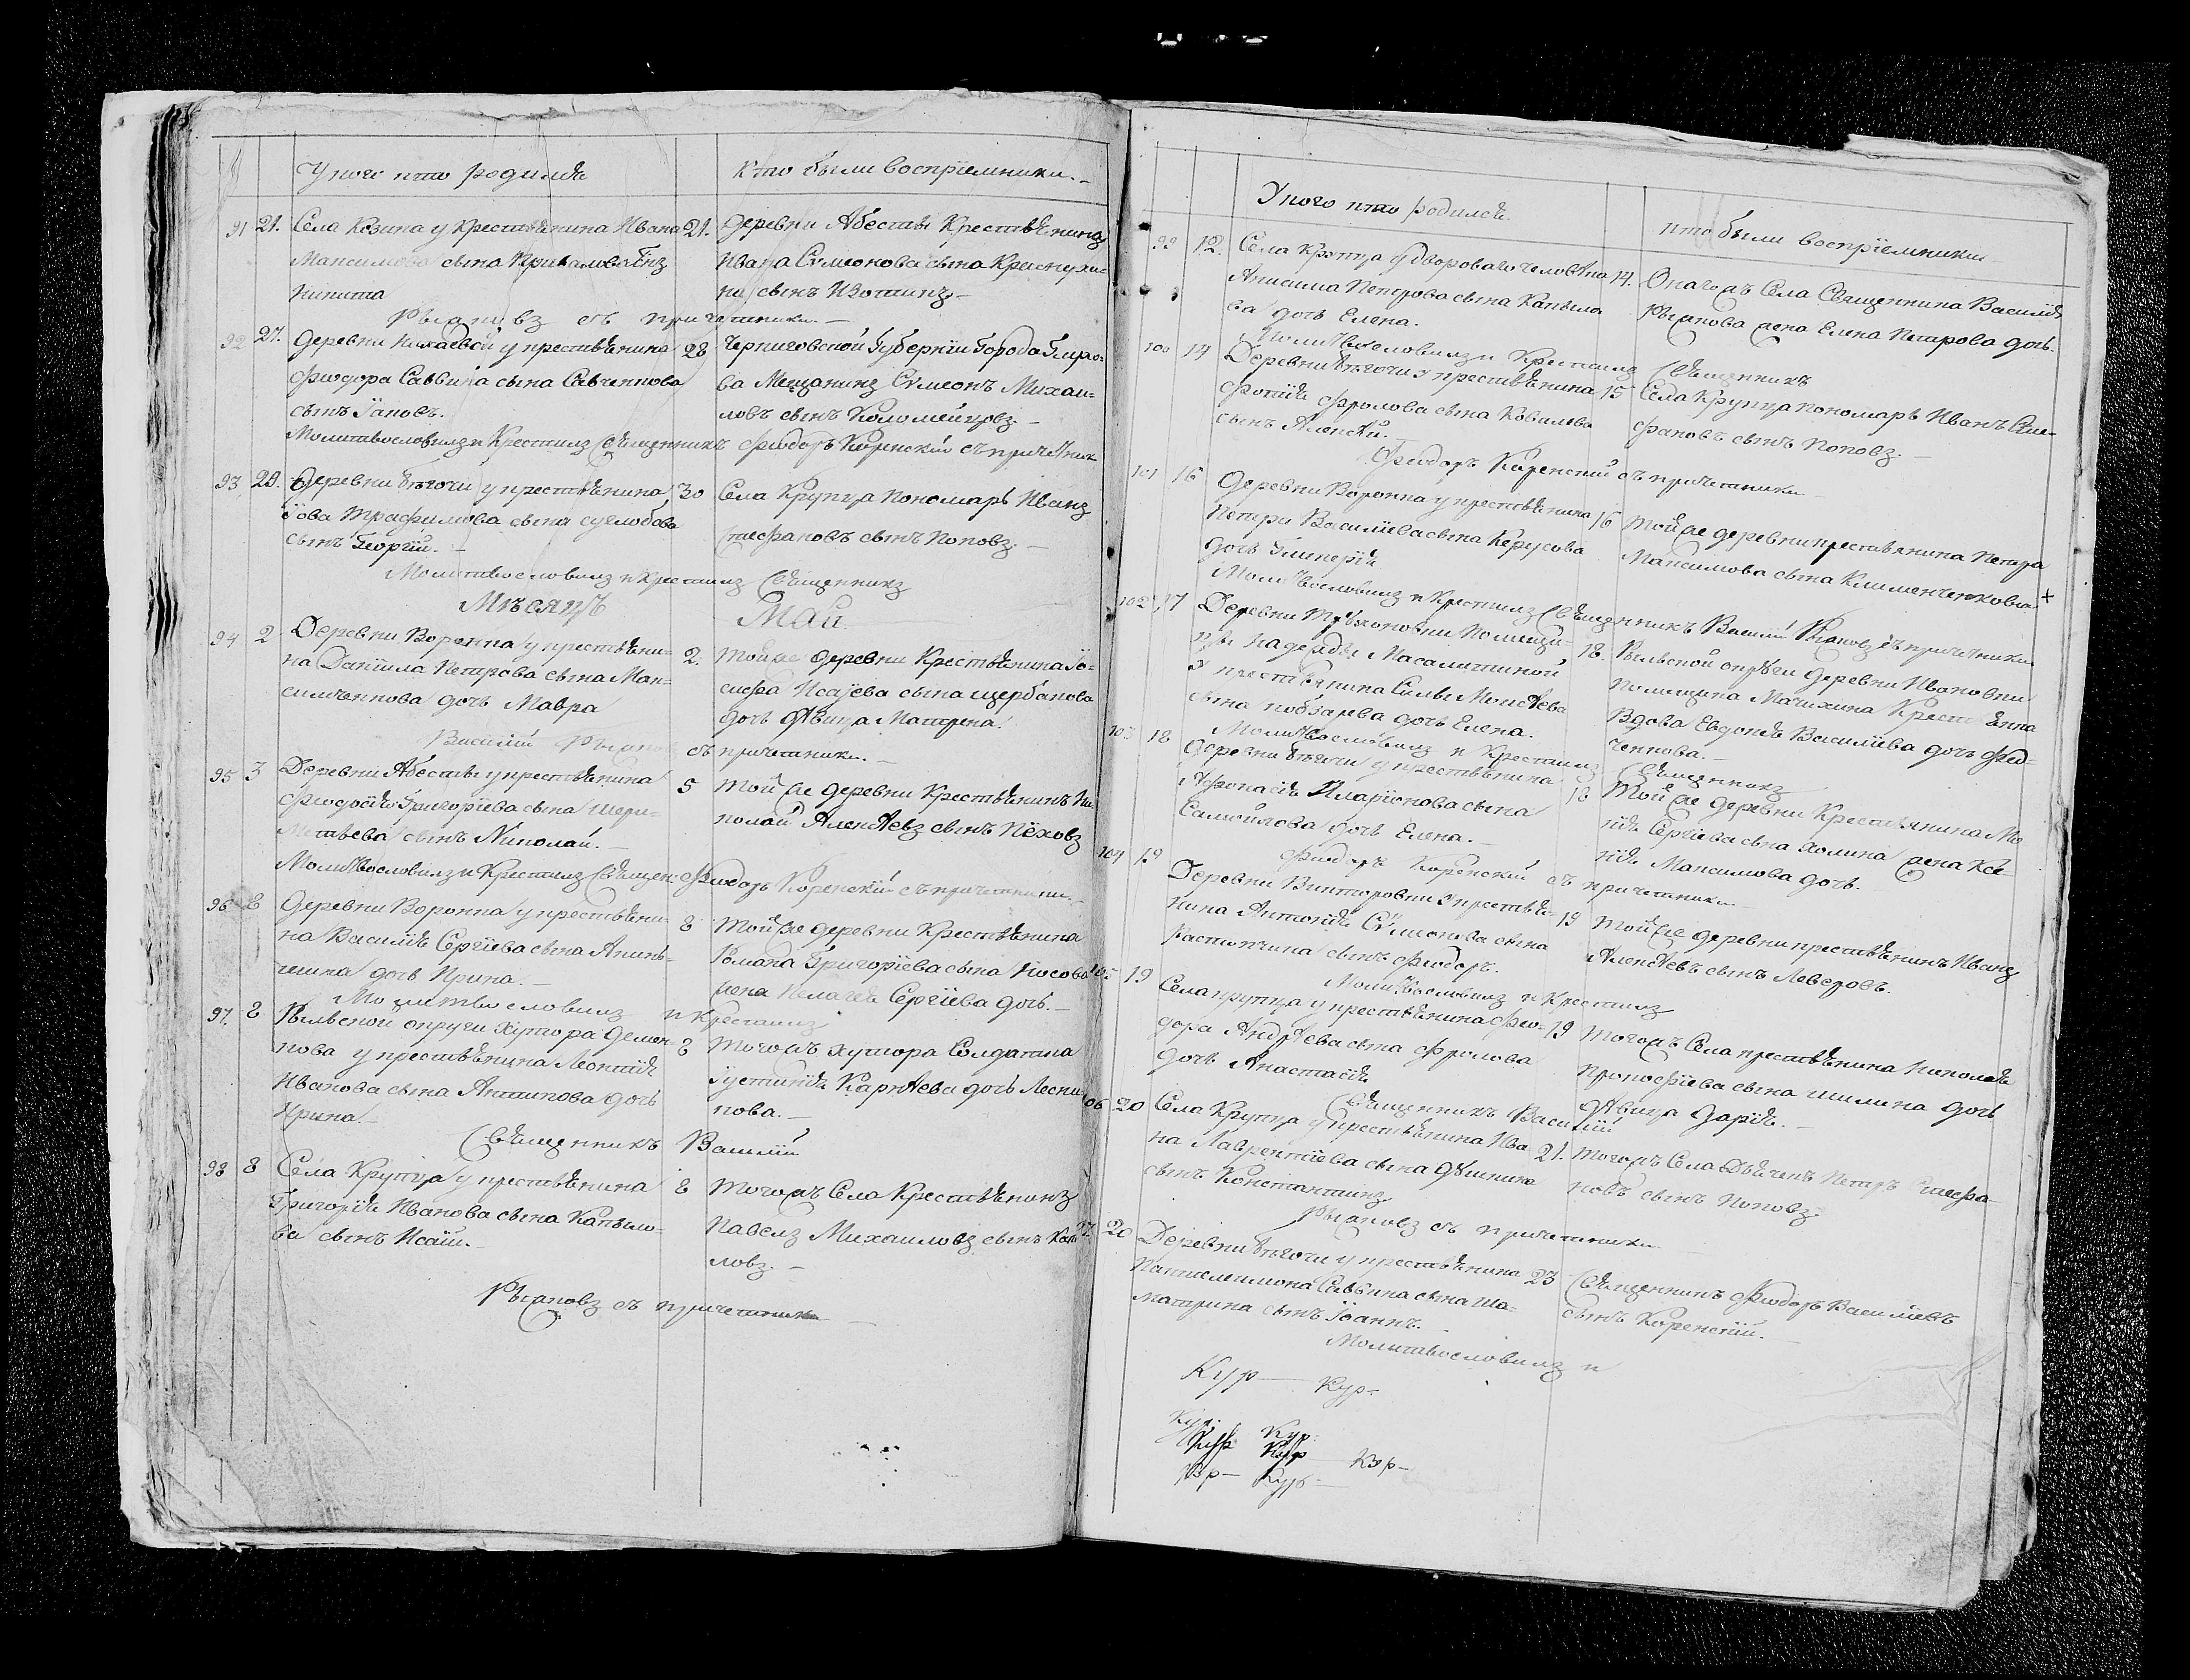 У кого кто родился
Кто были воспріемники.
91 21. Села Козина у Крестьянина Ивана
сына
Никита
21. деревни Абесты Крестьянина
Ивана Сѵмеонова сына
сынъ
Рыановъ съ причетники.
92 27. деревни у крестьянина
Фиодора Саввина сына Савченкова
сынъ
28 Черниговской Губерніи Города
Мещанинъ Сѵмеонъ Михаи-
ловъ сынъ Коломейцовъ.
Молитвословилъ и Крестилъ Священникъ Фиодоръ Коренскій съ причетники
93 29. Деревни Бѣгочи у крестьянина
Іова Трофимова сына
сынъ Георгій.
30 Села Крупца пономарь Иванъ
Стефановъ сынъ Поповъ.
Молитвословилъ и Крестилъ Священникъ
Мѣсяцъ Май
94 2 Деревни Воронка у крестьяни-
на Даніила Петрова сына Мак-
симченкова дочь Мавра
2. Той же деревни Крестьянина Іо-
сифа Исаіева сына Щербакова
дочь дѣвица Матрена.
Василій Рыановъ съ причетники.
95 3 Деревни Абесты у крестьянина
Феодосія Григоріева сына Шере-
метьева сынъ Николай.
5 Той же деревни Крестьянинъ Ни-
колай Алексѣевъ сынъ Пѣховъ
Молитвословилъ и Крестилъ Священ: Фиодоръ Коренскій съ причетники.
96 8 Деревни Воронка у крестьяни-
на Василія Сергіева сына
дочь Ирина.
8 Той же деревни Крестьянина
Романа Григоріева сына Носова
жена Пелагея Сергіева дочь.
Молитвословилъ и Крестилъ
97. 8 Рыльской округи хутора
у крестьянина Леонтія
Иванова сына Антипова дочь
Ирина.
8 Тогожъ хутора Солдатка
Іустинія Карнѣева дочь
Священникъ Василій
98 8 Села Крупца у крестьянина
Григорія Иванова сына Капыло-
ва сынъ Исаій.
8 Тогожъ Села Крестьянинъ
Павелъ Михаиловъ сынъ
ловъ.
Рыановъ съ причетники
У кого кто родился
Кто были воспріемники
99 12. Села Крупца у дворового человѣка
Анисима Петрова сына Капыло
ва дочь Елена.
14. Онагожъ Села Священника Василія
Рыанова жена Елена Петрова дочь.
Молитвословилъ и Крестилъ Священникъ
100 14 Деревни Бѣгочи у крестьянина
Фотія Фролова сына Ковалева
сынъ Алексѣй.
15 Села Крупца пономарь Иванъ Сте-
фановъ сынъ Поповъ.
Фиодоръ Коренскій съ причетники
101 16 Деревни Воронка у крестьянина
Петра Василіева сына
дочь Гликерія
16 Той же деревни крестьянина Петра
Максимова сына Клименченкова +
Молитвословилъ и Крестилъ Священникъ Василій Рыановъ съ причетники
102 17 Деревни помещи-
цы Надежды Масалитиной
у крестьянина Силы Моисѣева
сына дочь Елена.
18. Рыльской округи деревни Ивановки
помещика Мачихина Крестьянка
Вдова Евдокія Василіева дочь Фед-
ченкова.
Молитвословилъ и Крестилъ Священникъ
103 18 Деревни Бѣгочи у крестьянина
Афонасія Иларіонова сына
Самойлова дочь Елена.
18 Той же деревни Крестьянина
Сергіева сына Холина жена Ксе-
нія Максимова дочь.
Фиодоръ Коренскій съ причетники
104 19 Деревни Викторовки у крестья-
нина Антонія Сѵмонова сына
Растопчина сынъ Фиодоръ.
19 Той же деревни крестьянинъ Иванъ
Алексѣевъ сынъ
Молитвословилъ и Крестилъ
105 19 Села Крупца у крестьянина Фео-
дора Андрѣева сына Фролова
дочь Анастасія
19 Тогожъ Села крестьянина Николая
Прокофіева сына Шилина дочь
дѣвица Дарія.
Священникъ Василій
106 20 Села Крупца у крестьянина Ива
на Лаврентіева сына
сынъ Константинъ
21. Тогожъ Села Дьячекъ Петръ Стефа-
новъ сынъ Поповъ.
Рыановъ съ причетники
20 Деревни Бѣгочи у крестьянина
Пантелеимона Саввина сына
сынъ Іоаннъ.
23 Священникъ Фиодоръ Василіевъ
сынъ Коренскій.
Молитвословилъ и
Кур— Кур-
Кур. Кур.
Кур Кур Кур—
Кур— Кур—